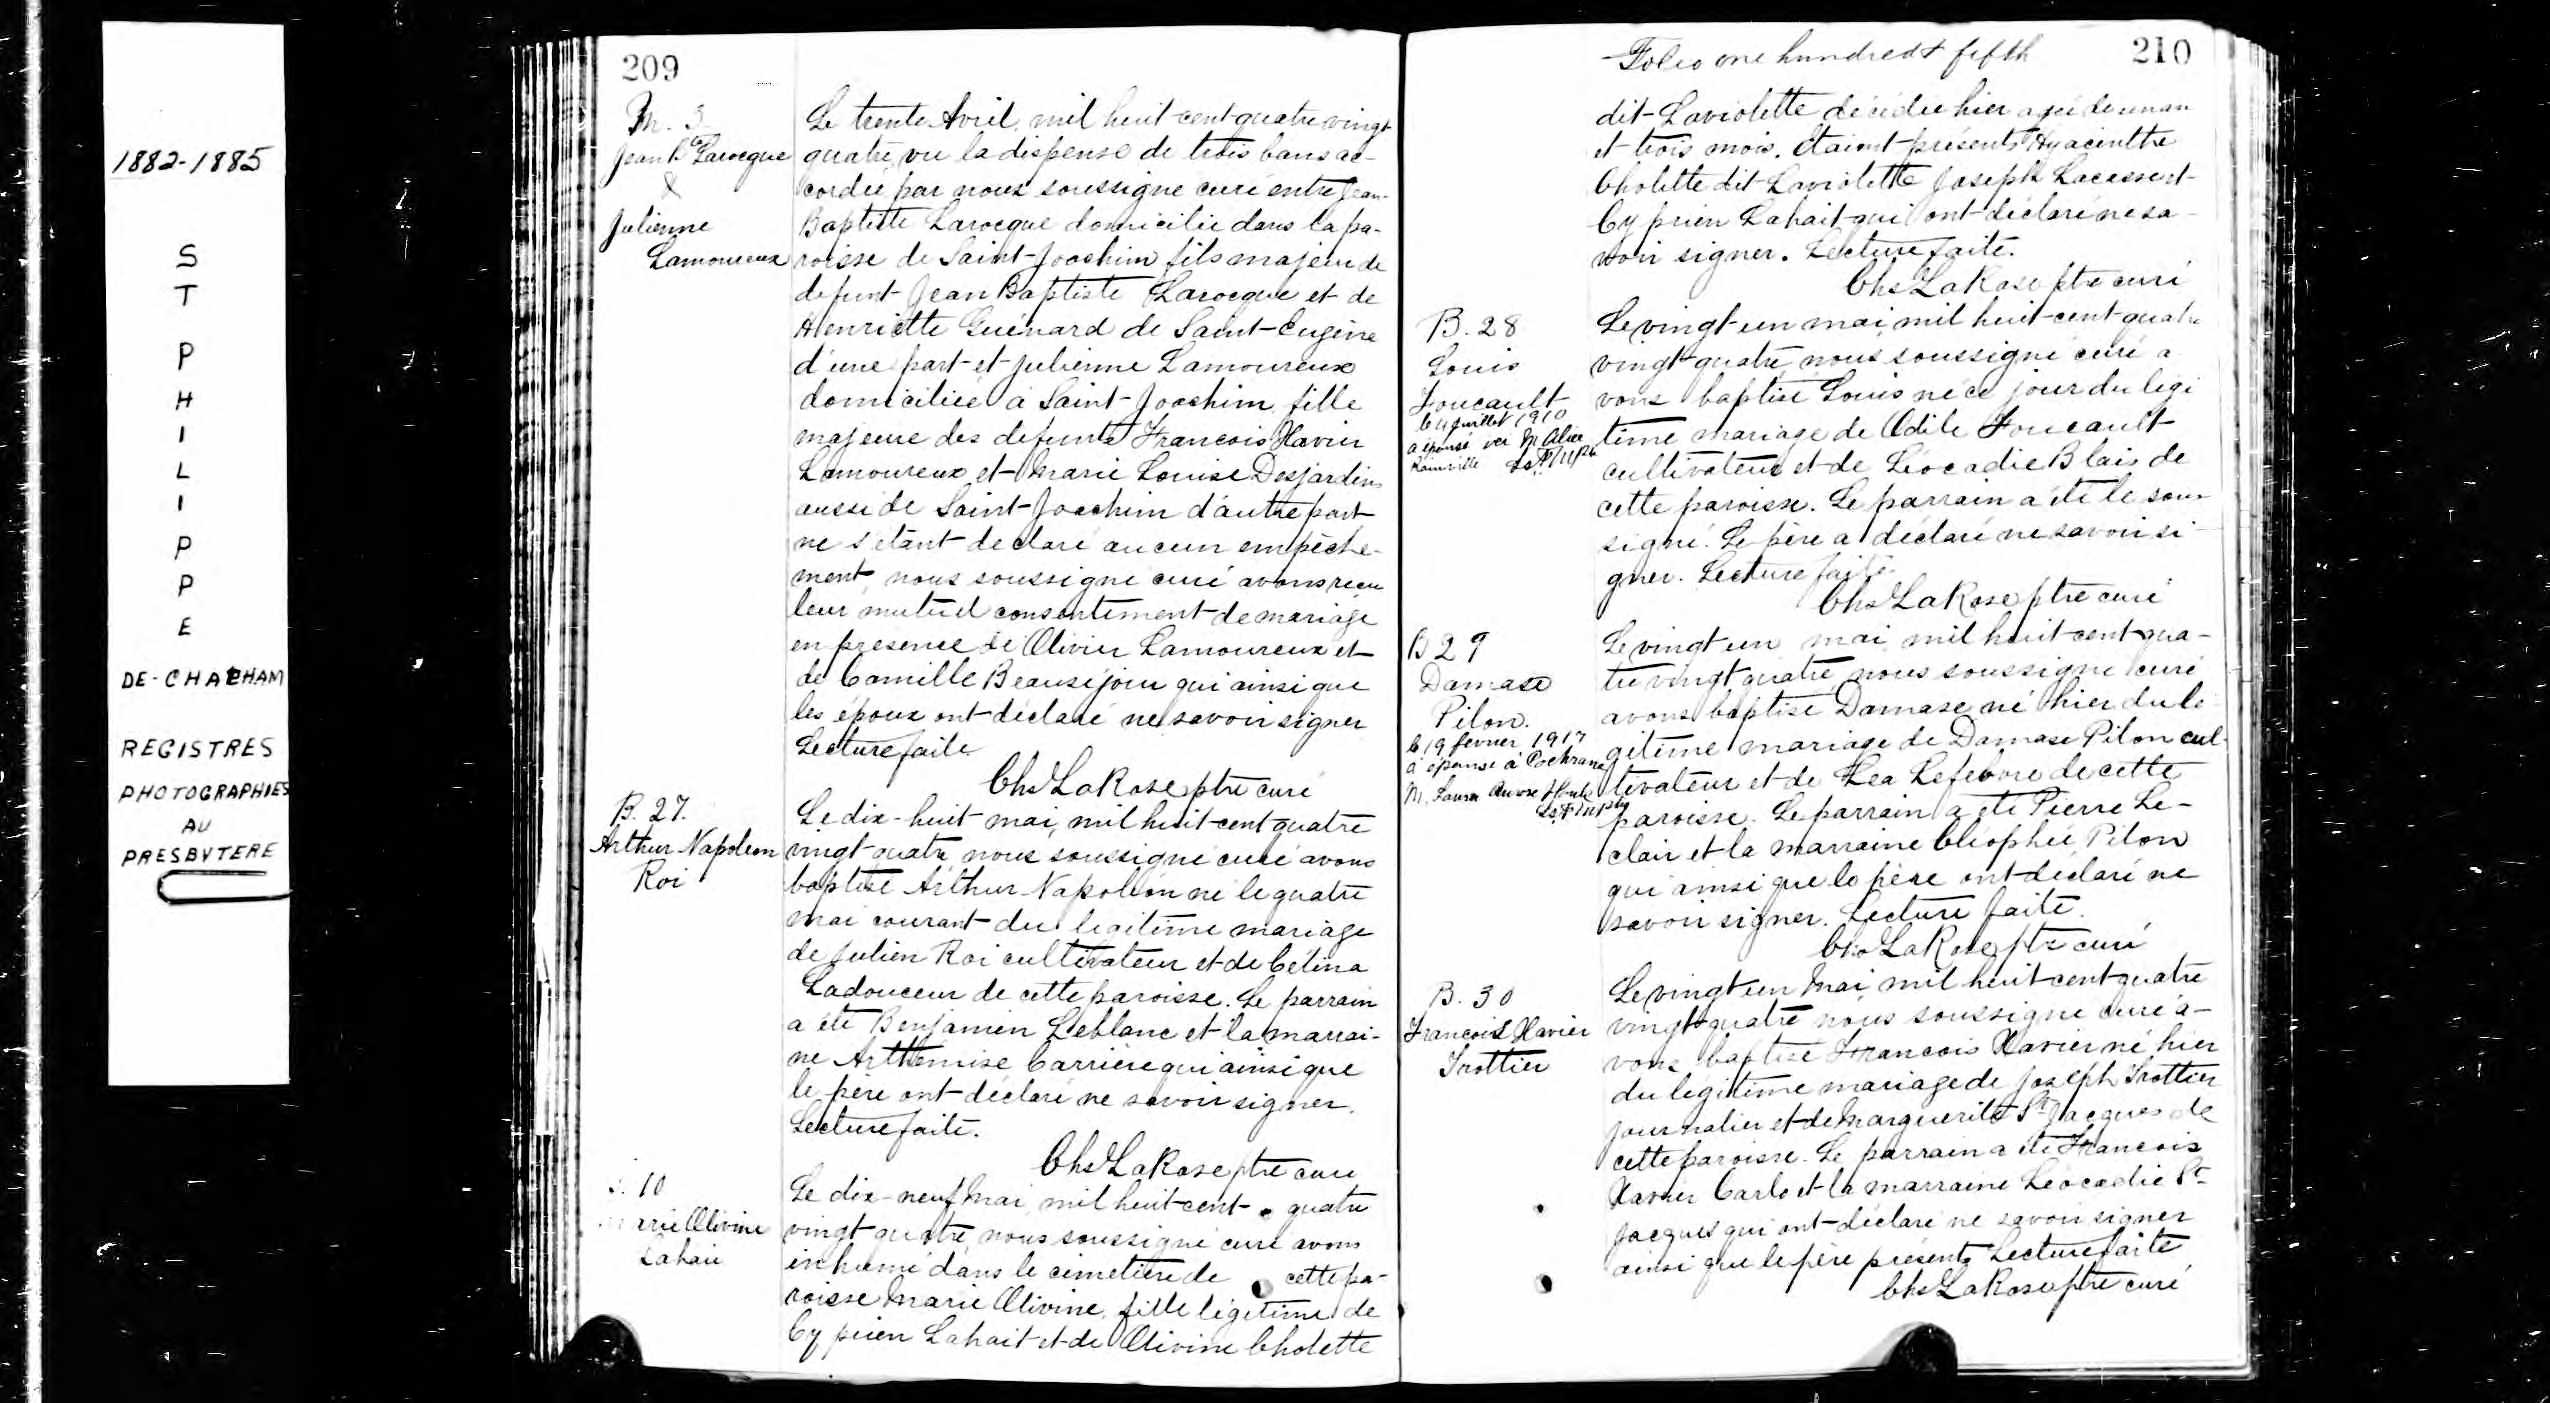 1882-1885
S
T
P
H
I
L
I
P
P
E
DE-CHATHAM
REGISTRES
PHOTOGRAPHIES
AU
PRESBYTERE
209
M. 3
Jean Bte Larocque
&
Julienne
Lamoureux
Le trente Avril, mil huit-cent-quatre vingt
quatre, vu la dispense de trois bans ac-
cordée par nous soussigné curé entre Jean-
Baptiste Larocque domicilié dans la pa-
roisse de Saint-Joachim fils majeur de
defunt Jean Baptiste Larocque et de
Henriette Guénard de Saint-Eugène
d'une part et Julienne Lamoureux
domiciliée à Saint-Joachim fille
majeure des defunts Francois Xavier
Lamoureux et Marie Louise Desjardins
aussi de Saint-Joachim d'autre part
ne s'étant declaré aucun empêche-
ment, nous soussigné curé avons reçu
leur mutuel consentement de mariage
en presence de Olivier Lamoureux et
de Camille Beauséjour qui ainsi que
les époux ont déclaré ne savoir signer
Lecture faite
Chs LaRose ptre curé
B. 27.
Arthur Napoleon
Roi
Le dix-huit mai, mil huit cent quatre
vingt quatre, nous soussigné curé avons
baptisé Arthur Napoléon né le quatre
mai courant du legitime mariage
de Julien Roi cultivateur et de Celina
Ladouceur de cette paroisse. Le parrain
a été Benjamin Leblanc et la marrai-
ne Arthémise Carrière qui ainsi que
le père ont déclaré ne savoir signer.
Lecture faite.
Chs LaRose ptre curé
S. 10
Marie Olivine
Lahaie
Le dix-neuf Mai, mil huit-cent- quatre
vingt quatre, nous soussigné curé avons
inhumé dans le cimetière de cette pa-
roisse Marie Olivine, fille légitime de
Cyprien Lahait et de Olivine Cholette
Folio one hundredt fifth
210
dit-Laviolette décédée hier agée de un an
et trois mois. Etaient présents Hyacinthe
Cholette dit Laviolette Joseph Lacasse et
Cyprien Lahait qui ont déclaré ne sa-
voir signer. Lecture faite.
Chs LaRose ptre curé
B. 28
Louis
Foucault
le 4 juillet 1910
a épousé M. Alice
Le vingt-un mai, mil huit-cent-quatre
vingt-quatre, nous soussigné curé a
vons baptisé Louis né ce jour du légi
time mariage de Odile Foucault
cultivateur et de Léocadie Blais de
cette paroisse. Le parrain a été le sous
signé. Le père a déclaré ne savoir si
gner. Lecture faite
Chs LaRose ptre curé
B 29
Damase
Pilon.
le 19 fevrier 1917
a épousé à Cochrane
M. Laura
Le vingt un mai, mil huit cent qua-
tre vingt quatre, nous soussigné curé
avons baptisé Damase né hier du lé
gitime mariage de Damase Pilon cul-
tivateur et de Lea Lefebvre de cette
paroisse. Le parrain a été Pierre Le-
clair et la marraine Cléophée Pilon
qui ainsi que le père ont déclaré ne
savoir signer. Lecture faite.
Chs LaRose ptre curé
B. 30
Francois Xavier
Trottier
Le vingt un Mai, mil huit cent quatre
vingt-quatre nous soussigné curé a-
vons baptisé Francois Xavier né hier
du legitime mariage de Joseph Trottier
journalier et de Marguerite St Jacques de
cette paroisse. Le parrain a été Francois
Xavier Carle et la marraine Léocadie St-
Jacques qui ont déclaré ne savoir signer
ainsi que le père présent. Lecture faite
Chs LaRose ptre curé